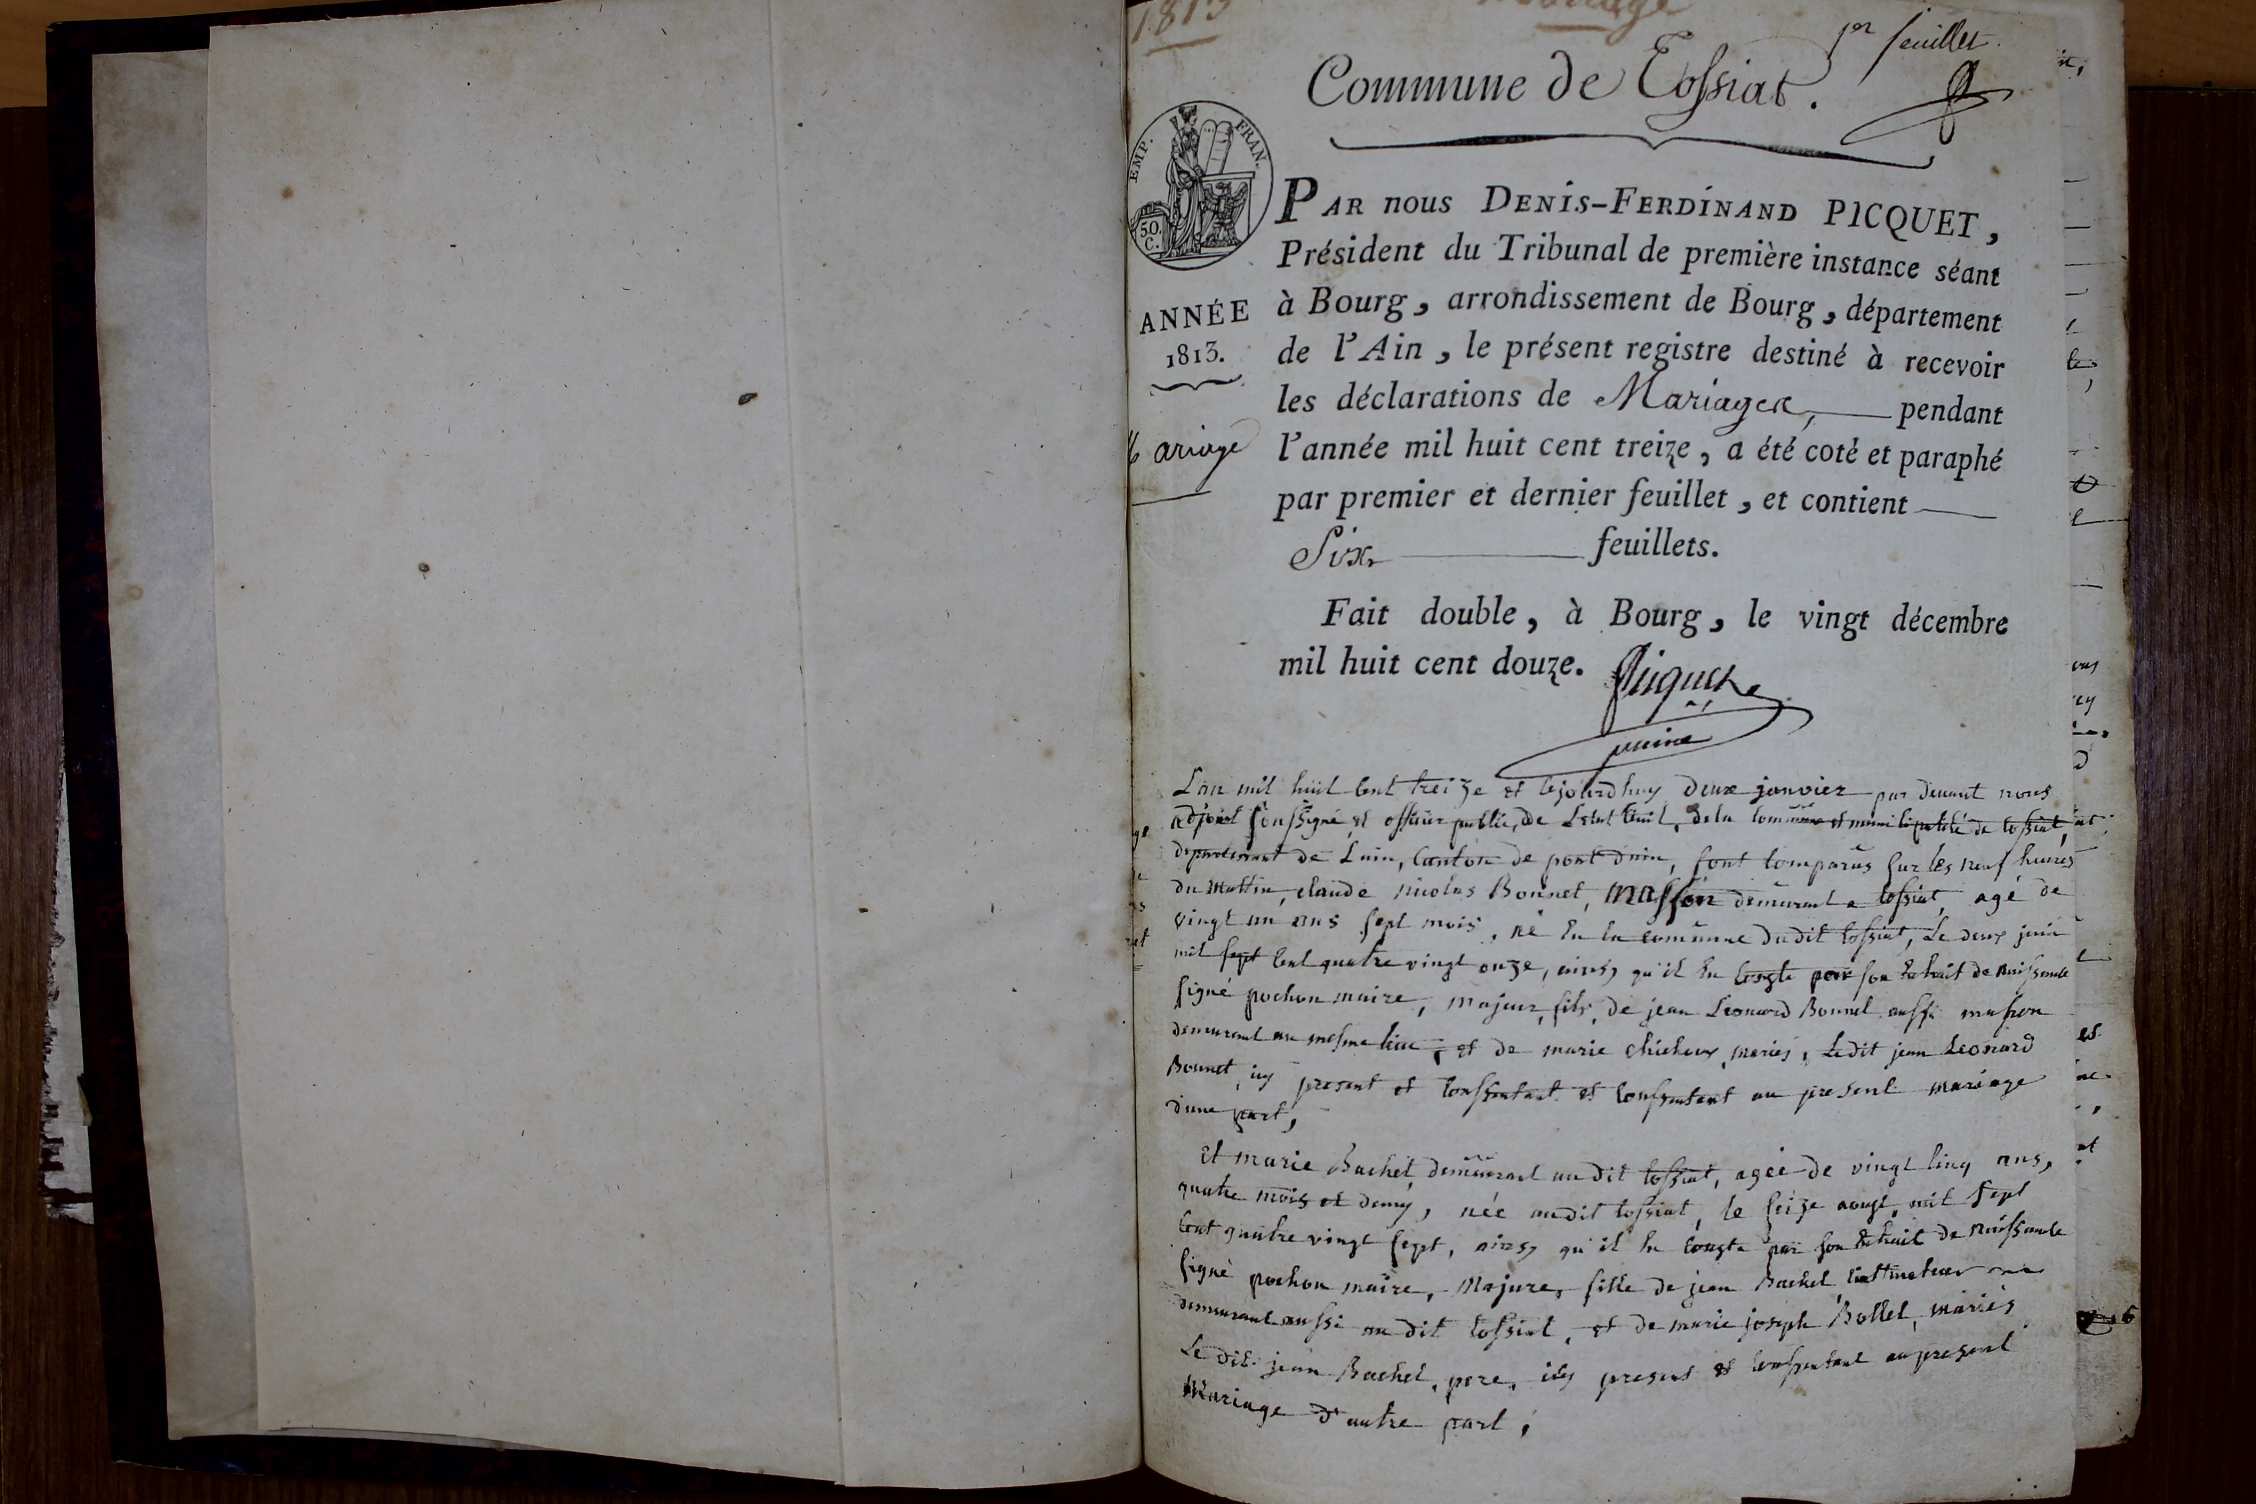 1813
Mariage
1er feuillet.
Commune de Tossiat.
EMP. FRAN.
50. C.
ANNÉE
1813.
Mariage
PAR nous DENIS-FERDINAND PICQUET,
Président du Tribunal de première instance séant
à Bourg, arrondissement de Bourg, département
de l'Ain, le présent registre destiné à recevoir
les déclarations de Mariages, pendant
l'année mil huit cent treize, a été coté et paraphé
par premier et dernier feuillet, et contient
Six feuillets.
Fait double, à Bourg, le vingt décembre
mil huit cent douze.
Picquet
L'an mil huit Cent treize et cejourdhuy deux janvier par devant nous
adjoint soussigné et officier public, de Letat Civil, dela commune et municipalité de tossiat,
departement de Lain, Canton de pont dain, sont comparus sur les neuf heures
du Mattin, claude nicolas Bonnet, Masson demurant a tossiat, agé de
vingt un ans sept mois, né en la commune dudit tossiat, Le deux juin
mil sept Cent quatre vingt onze, ainsy qu'il en conste par son Extrait de naissance
signé pochon maire, majeur, fils, de jean Leonard Bonnet aussi masson
demurant au mesme lieu, et de marie chicheux, mariés, Ledit jean Leonard
Bonnet, icy present et Conssentant et Conssentant au present mariage
dune part,
Et marie Bachet, demeurant audit tossiat, agée de vingt cinq ans,
quatre mois et demy, née audit tossiat, le seize aougt, mil sept
Cent quatre vingt sept, ainsy qu'il en conste par son Extrait de naissance
signé pochon maire, Majure, fille de jean Bachet, Cultivateur
demurant aussi audit tossiat, et de marie joseph Bollet, mariés
Le dit jean Bachet, pere, icy present et consentant au present
Mariage d'autre part,